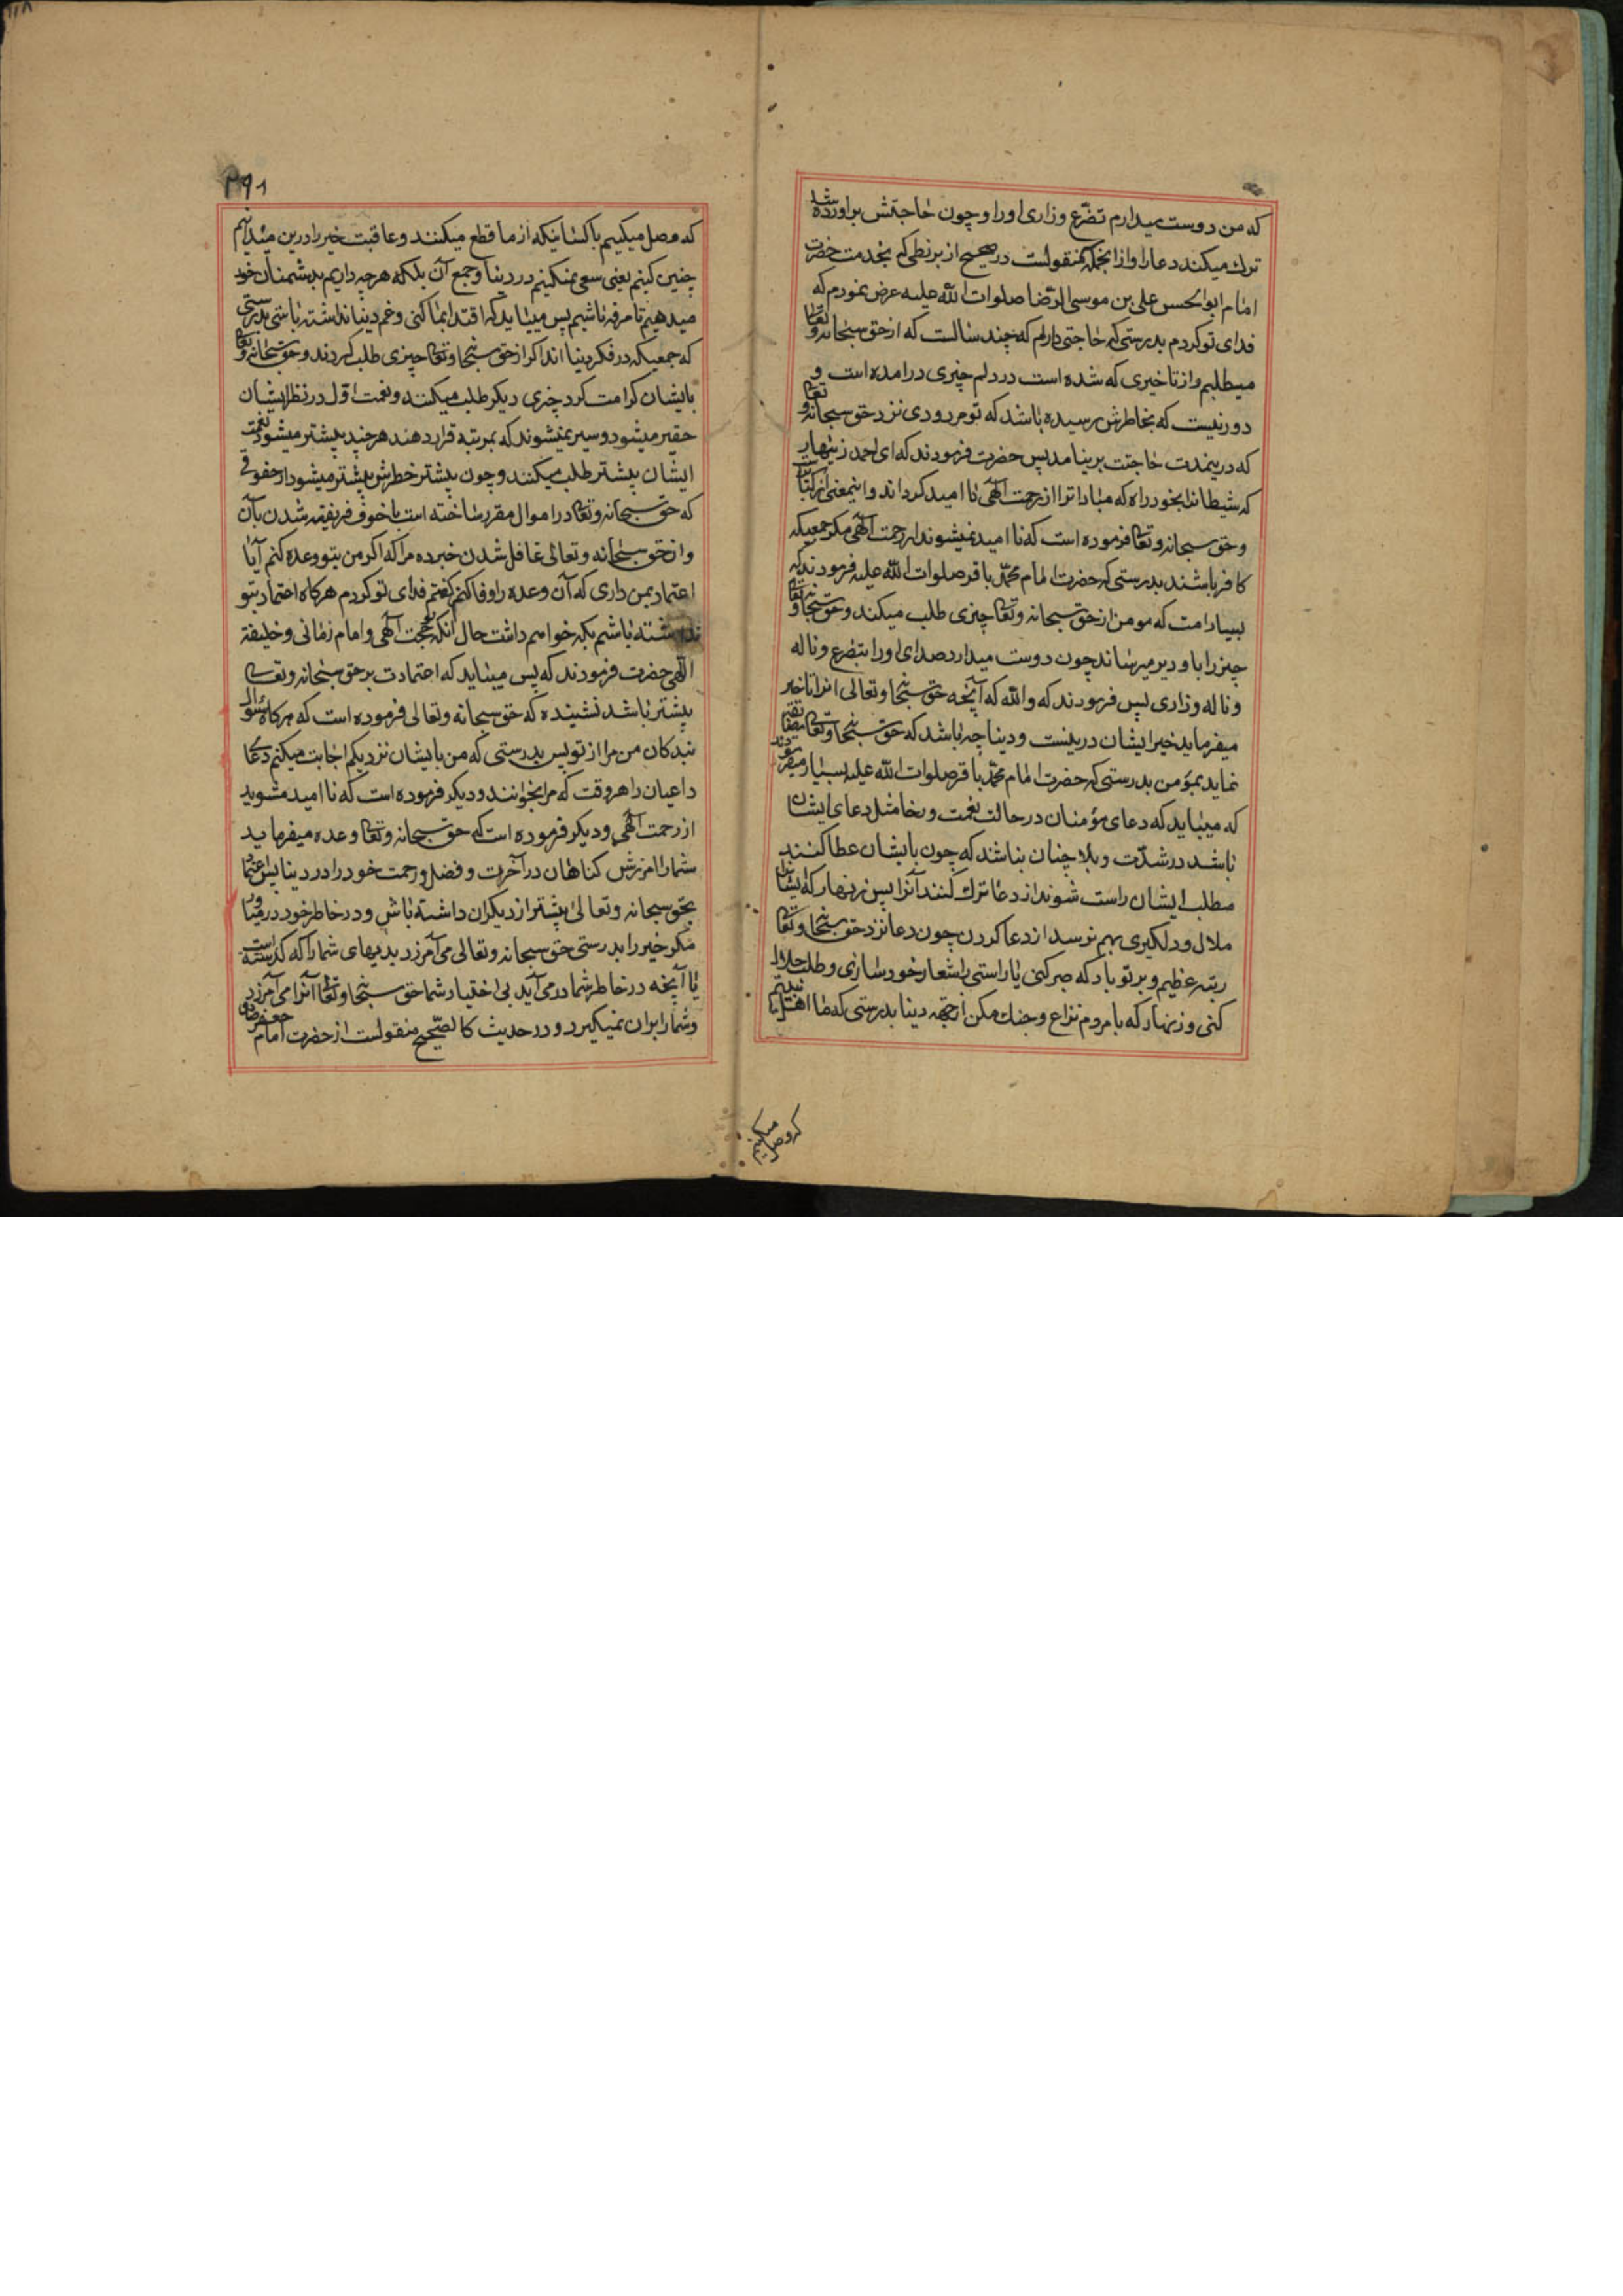 که من دوست میدارم تضرّع وزاری او را و چون حاجتش براورده شد
ترك میکند دعا را و از انجمله منقولست در صحیح از بزنطی که بخدمت حضرت
امام ابوالحسن علی بن موسی الرّضا صلوات الله علیه عرض نمودم که
فدای تو کردم بدرستی که حاجتی دارم که چند سالست که از حق سبحانه و تعالی
میطلبم و از تاخیری که شده است در دلم چیزی درامده است و
دور نیست که بخاطرش رسیده باشد که تو مردودی نزد حق سبحانه و تعالی
که درینمدت حاجتت برنیامد پس حضرت فرمودند که ای احمد زینهار
که شیطانرا بخود راه که مبادا ترا از رحمت الٓهی نا امید کرداند و اینمعنی از
و حق سبحانه و تعالی فرموده است که نا امید نمیشوند از رحمت الٓهی مکر جمعیکه
کافر باشند بدرستی که حضرت امام محمّد باقر صلوات الله علیه فرمودند که
بسیارامت که مومن از حق سبحانه و تعالی چیزی طلب میکند و حق سبحانه و تعالی
چیز را باو دیر میرساند چون دوست میدارد صدای او را بتضرع و ناله
و ناله و زاری پس فرمودند که والله که آنچه حق سبحانه و تعالی انرا تاخیر
میفرماید خیر ایشان درینست و دینا چه باشد که حق سبحانه و تعالی
نماید بمؤمن بدرستی که حضرت امام محمّد باقر صلوات الله علیه بسیار میفرمودند
که میباید که دعای مؤمنان در حالت نعمت و رخا مثل دعای ایشان
باشد در شدّت و بلا چنان نباشد که چون بایشان عطا کنند
مطلب ایشان راست شوند از دعا ترك کنند آنرا پس زینهار که ایشانرا
ملال و دلکیری بهم نرسد از دعا کردن چون دعا نزد حق سبحانه و تعالی
رتبه عظیم و بر تو باد که صبر کنی یا راستی را شعار خود سازی و طلب حلال
کنی و زینهار که با مردم نزاع و جنك مکن از جهه دینا بدرستی که ما اهلبیتیم
که وصل میکنیم
۳۹۱
که وصل میکنیم با کسانیکه از ما قطع میکنند و عاقبت خیر را درین میدانیم
چنین کنیم یعنی سعی نمیکنیم در دینا و جمع آن بلکه هرچه داریم بدشمنان خود
میدهیم تا مرفه باشیم پس میباید که اقتدا بما کنی و غم دینا نداشته باشی بدرستی
که جمعیکه در فکر دینا اند اکر از حق سبحانه و تعالی چیزی طلب کردند و حق سبحانه و تعالی
بایشان کرامت کرد چیزی دیکر طلب میکنند و نعمت اول در نظر ایشان
حقیر میشود و سیر نمیشوند که بمرتبه قرار دهند هرچند بیشتر میشود نعمت
ایشان بیشتر طلب میکنند و چون بیشتر خطرش بیشتر میشود از حقوقی
که حق سبحانه و تعالی در اموال مقرر ساخته است با خوف فریفته شدن بآن
و از حق سبحانه و تعالی غافل شدن خبر ده مرا که اکر من بتو وعده کنم آیا
اعتماد بمن داری که آن وعده را وفا کنم کفتم فدای تو کردم هرکاه اعتماد بتو
نداشته باشم بکه خواهم داشت حال آنکه حجت الٓهی و امام زمانی و خلیفة
اللّهی حضرت فرمودند که پس میباید که اعتمادت بر حق سبحانه و تعالی
بیشتر باشد نشیندهٔ که حق سبحانه و تعالی فرموده است که هرکاه سئوال
بندکان من مرا از تو پس بدرستی که من بایشان نزدیکم اجابت میکنم دعای
داعیان را هر وقت که مرا بخوانند و دیکر فرموده است که نا امید مشوید
از رحمت الٓهی و دیکر فرموده است که حق سبحانه و تعالی وعده میفرماید
شمارا امرزش کناهان در آخرت و فضل و رحمت خود را در دینا پس اعتماد
بحق سبحانه و تعالی بیشتر از دیکران داشته باش و در خاطر خود در میاور
مکر خیر را بدرستی حق سبحانه و تعالی می آمرزد بدیهای شما را که کذشته است
یا آنچه در خاطر شما در می آید بی اختیار شما حق سبحانه و تعالی آنرا می آمرزد
و شما را بران نمیکیرد و در حدیث کالصّحیح منقولست از حضرت امام جعفر صادق